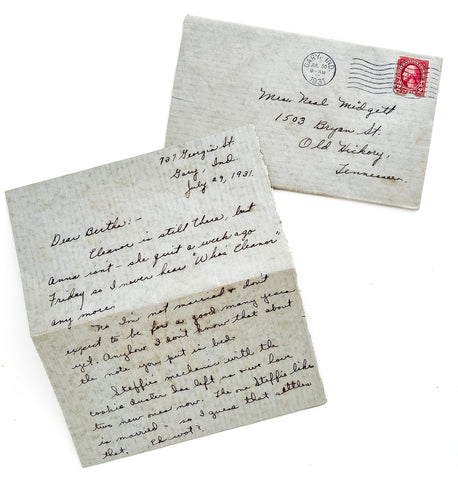 GARY, IND.
JUL 30
8-AM
1931
Mrs. Neal Midgett
1503 Bryan St.
Old Hickory,
Tennessee.
737 Georgia St.
Gary, Ind.
July 29, 1931.
Dear Bertha:-
Eleanor is still there, but
Anna isnt - she quit a week ago
Friday so I never hear "Whos Eleanor"
any more.
No Im not married & don't
expect to be for a good many years
yet. Anyhow I don't know that about
the note you put in bed.
Steffie's mechanic with the
cookie duster has left so we have
two new ones now. The one Steffie likes
is married - so I guess that settles
that. Eh wot?